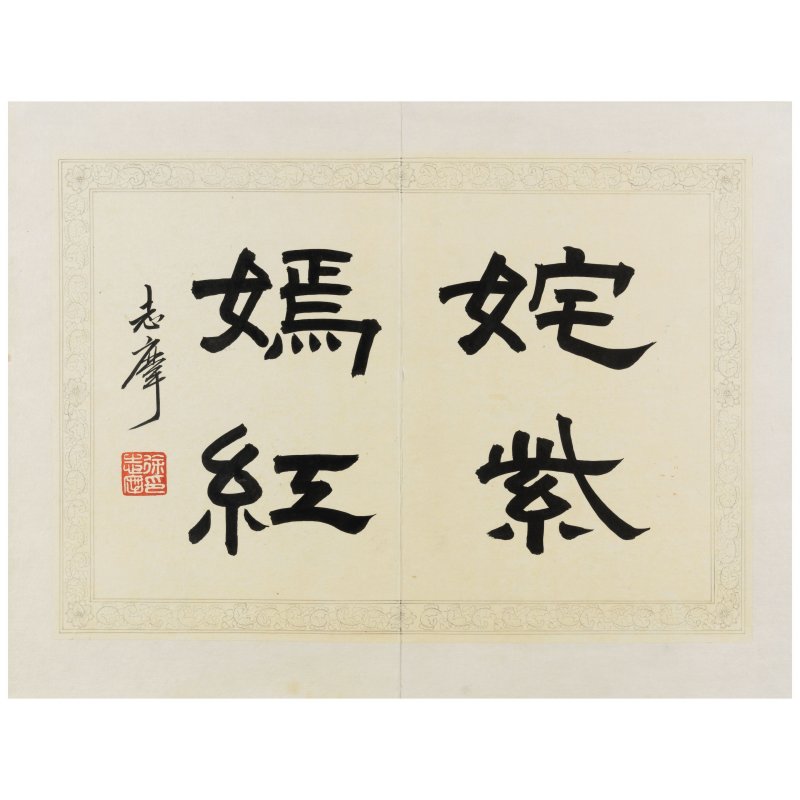 姹紫
嫣紅
志摩
徐志摩印